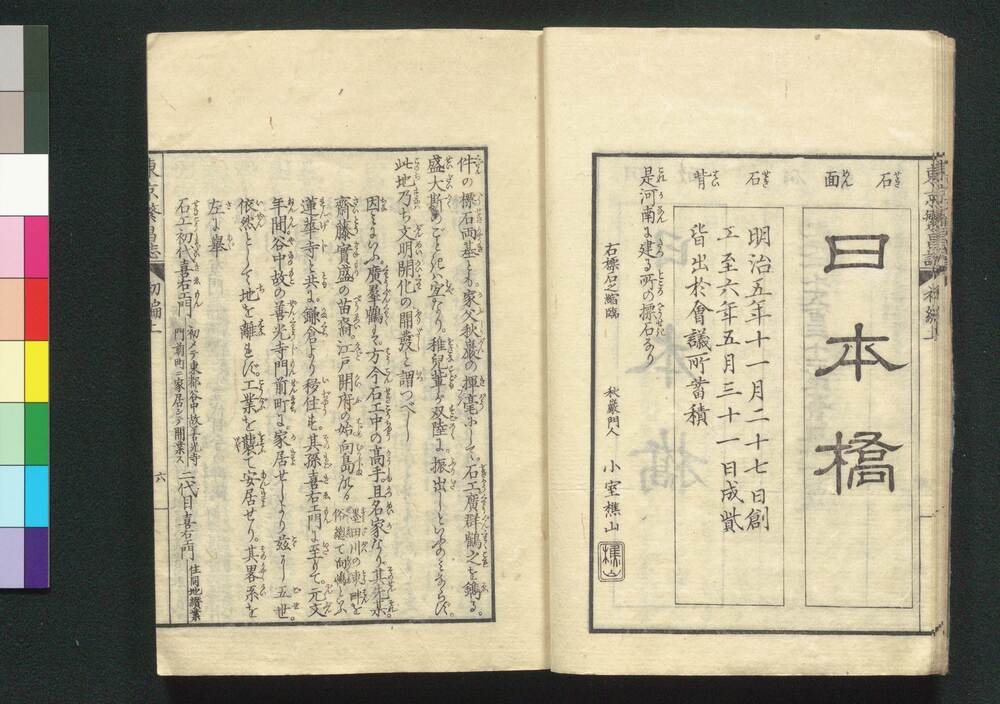 東京繁昌誌 初編上
石面
日本橋
石背
明治五年十一月二十七日創
工至六年五月三十一日成貲
皆出於會議所蓄積
是河南に建る所の標石なり
右標石之縮臨 秋巖門人 小室樵山
樵山
件の標石両基とも。家父秋巖の揮毫にして。石工廣群鶴之を鐫る。
盛大斯のごときハ宜なり。稚兒輩が双陸に振出しといふの
此地乃ち文明開化の開發と謂つべし
因にいふ。廣羣鶴も。方今石工中の高手。且名家なり。其先ハ
齋藤實盛の苗裔。江戸開府の始向島なる 墨田川の東畔を俗總て向嶋といふ
蓮華寺と共に。鎌倉より移住す。其孫喜右エ門に至りて。元文
年間谷中故の善光寺門前町に家居せしより茲に五世。
依然として地を離れず。工業を襲て安居せり。其畧系を
左に擧
石工初代喜右エ門 初メテ東都谷中故善光寺門前町ニ家居シテ開業ス 二代目喜右エ門 住同地續業
東京繁昌誌 初編上 六